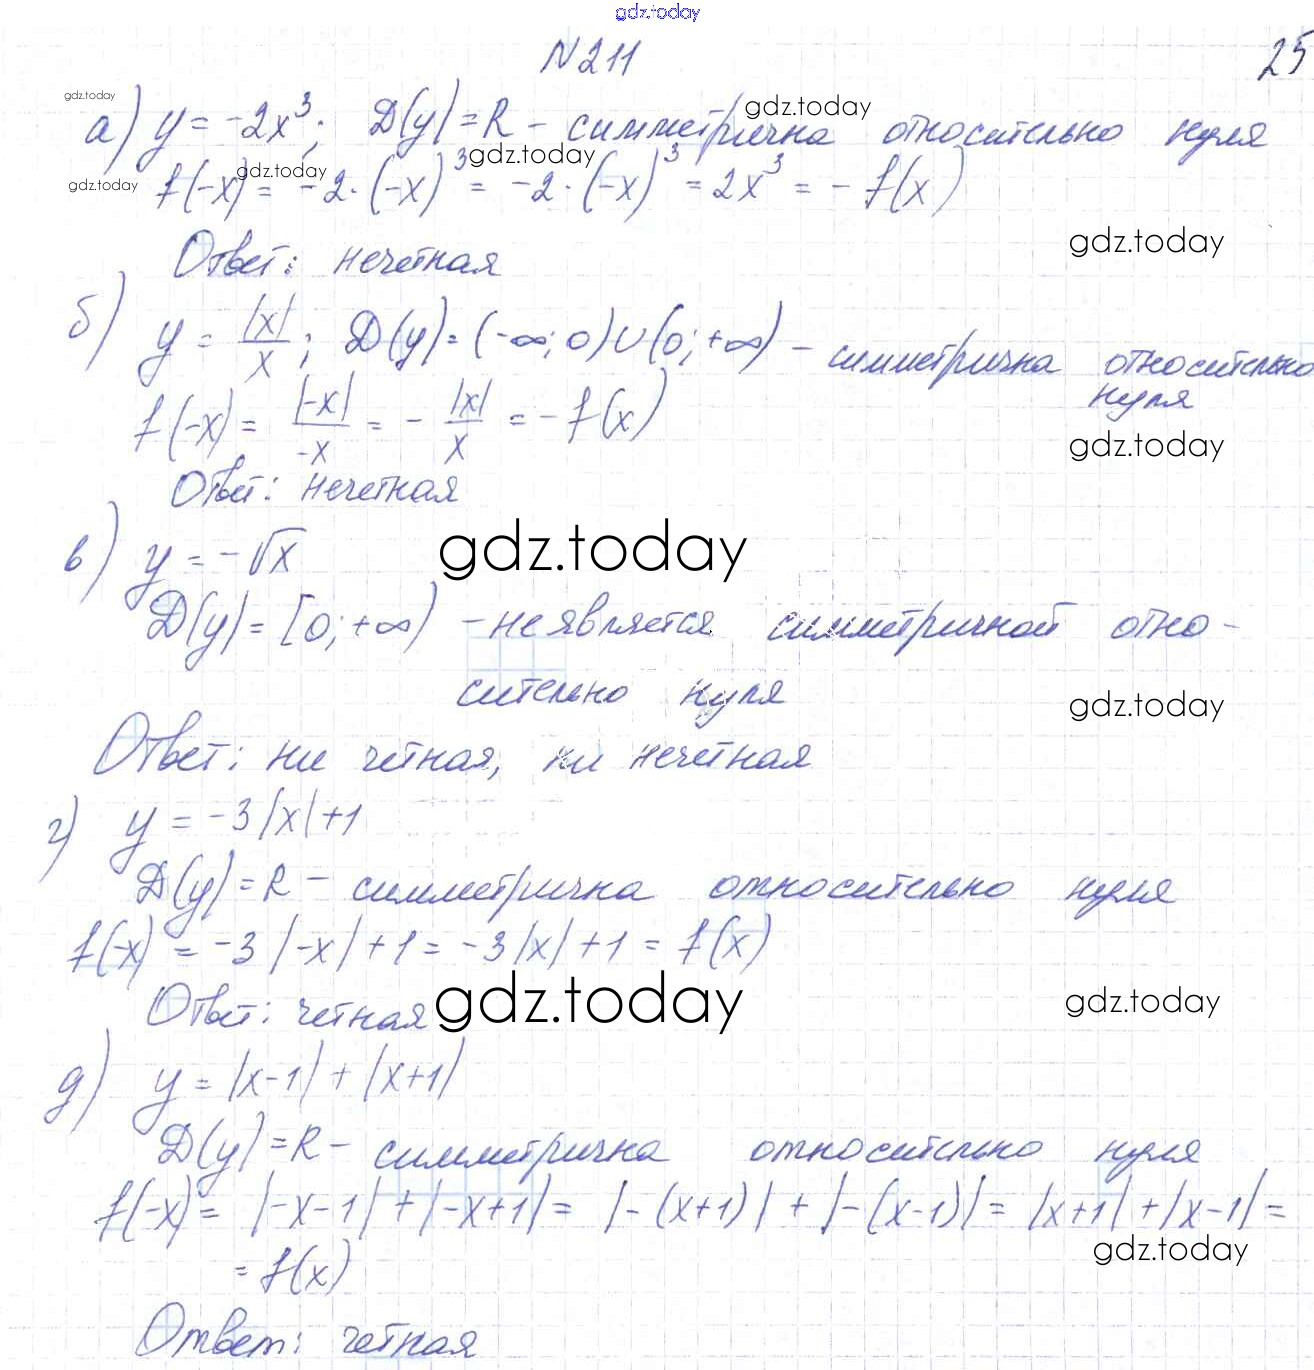 gdz.today
N211
25
gdz.today
а) y = -2x³; D(y) = R - симметрична относительно нуля
gdz.today
gdz.today
gdz.today
gdz.today
f(-x) = -2·(-x)³ = -2·(-x)³ = 2x³ = -f(x)
gdz.today
Ответ: нечетная
б) y = |x|/x; D(y) = (-∞; 0) ∪ (0; +∞) - симметрична относительно
нуля
f(-x) = |-x|/-x = - |x|/x = -f(x)
gdz.today
Ответ: нечетная
в) y = -√x
gdz.today
D(y) = [0; +∞) - не является симметричной отно-
сительно нуля
gdz.today
Ответ: ни четная, ни нечетная
г) y = -3|x|+1
D(y) = R - симметрична относительно нуля
f(-x) = -3|-x|+1 = -3|x|+1 = f(x)
Ответ: четная
gdz.today
gdz.today
д) y = |x-1| + |x+1|
D(y) = R - симметрична относительно нуля
f(-x) = |-x-1| + |-x+1| = |-(x+1)| + |-(x-1)| = |x+1| + |x-1| =
gdz.today
= f(x)
Ответ: четная